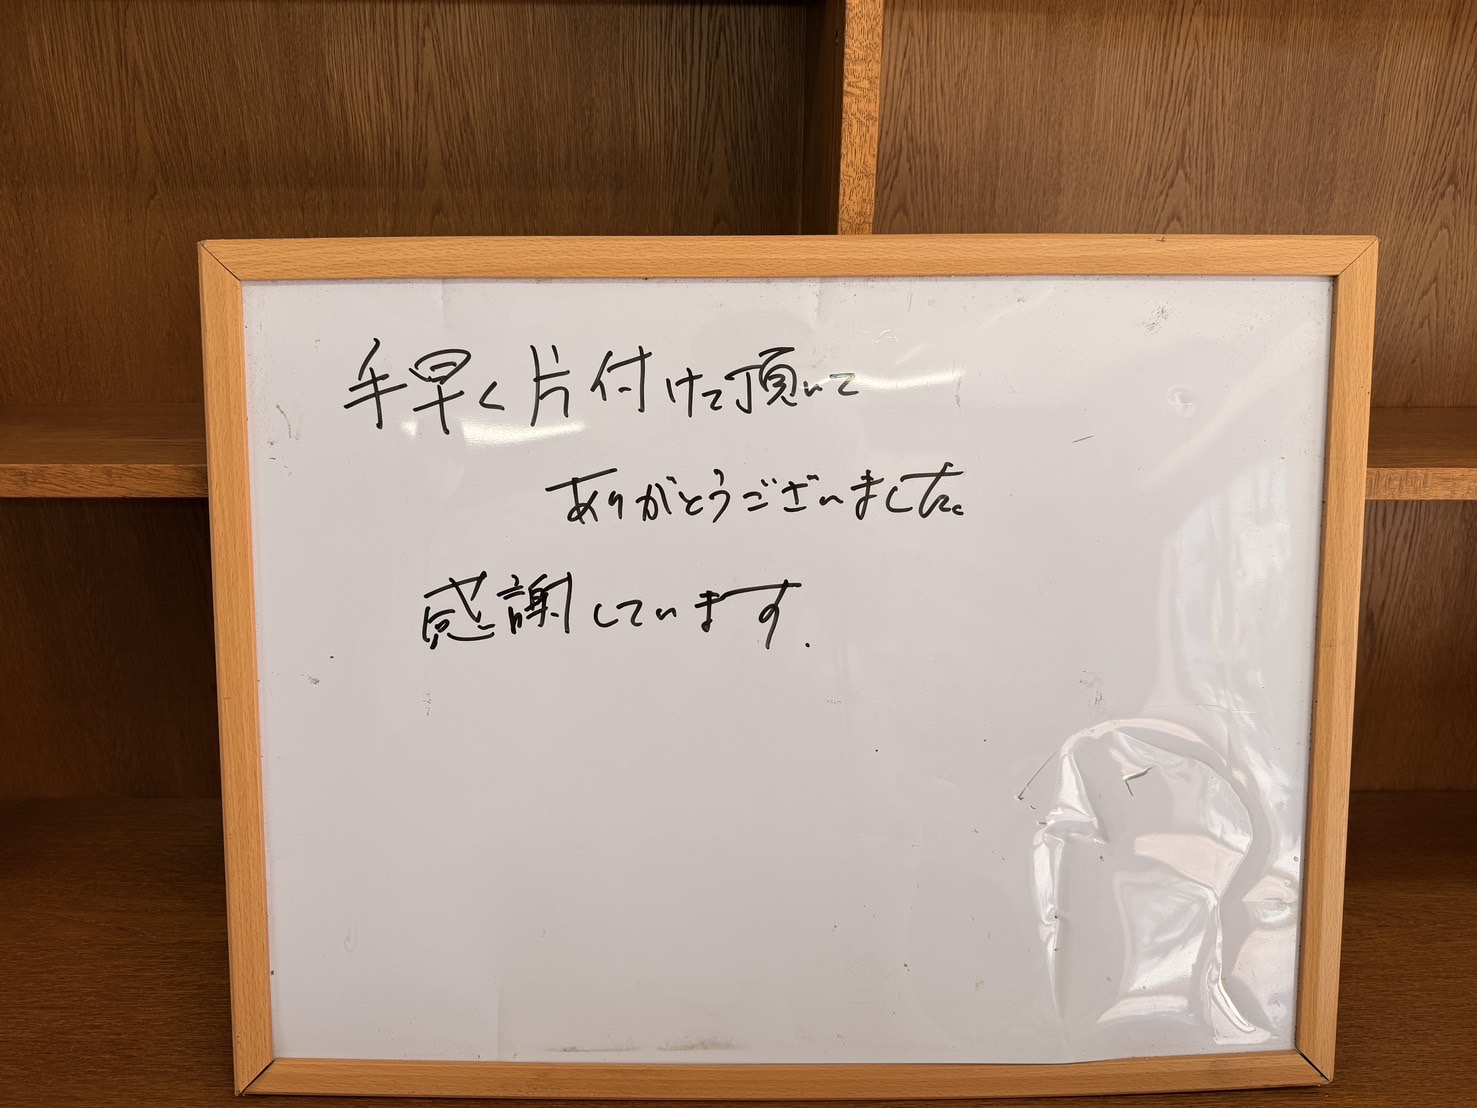 手早く片付けて頂いて
ありがとうございました。
感謝しています.